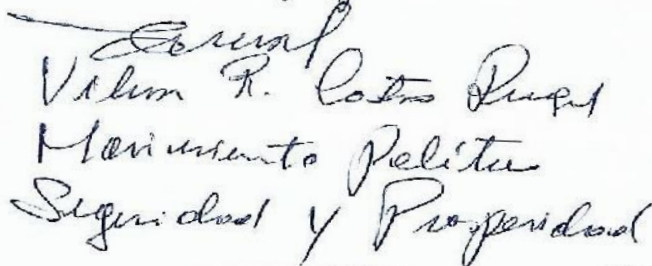 Vilma R. Castro Rangel
Movimiento Político
Seguridad y Prosperidad